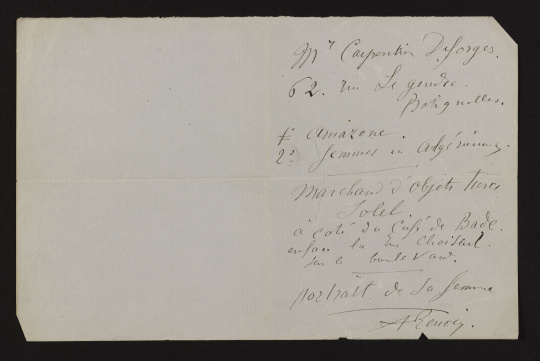 Mr Carpentier Deforges.
62. rue Le gendre.
Batignolles.
1° amazone.
2° femmes en algériennes.
Marchand d'objets turcs
à coté du Café de Bade.
en face la rue Choiseul.
sur le boulevard.
portrait de sa femme
A Renoir.